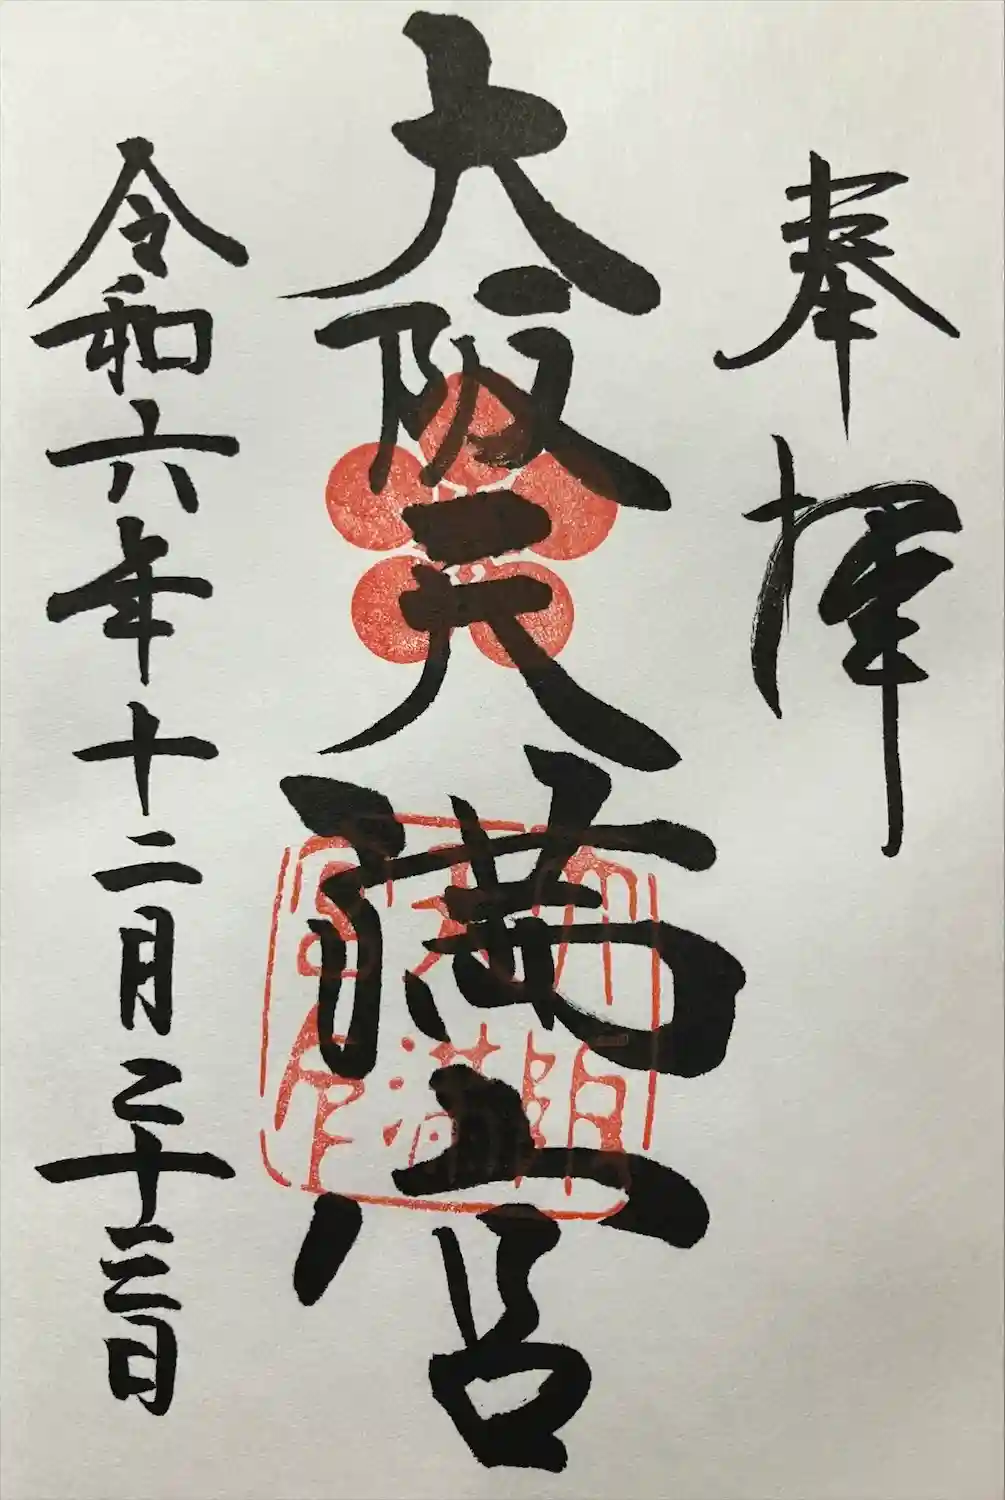 奉拝
大阪天満宮
大阪天満宮印
令和六年十二月二十三日